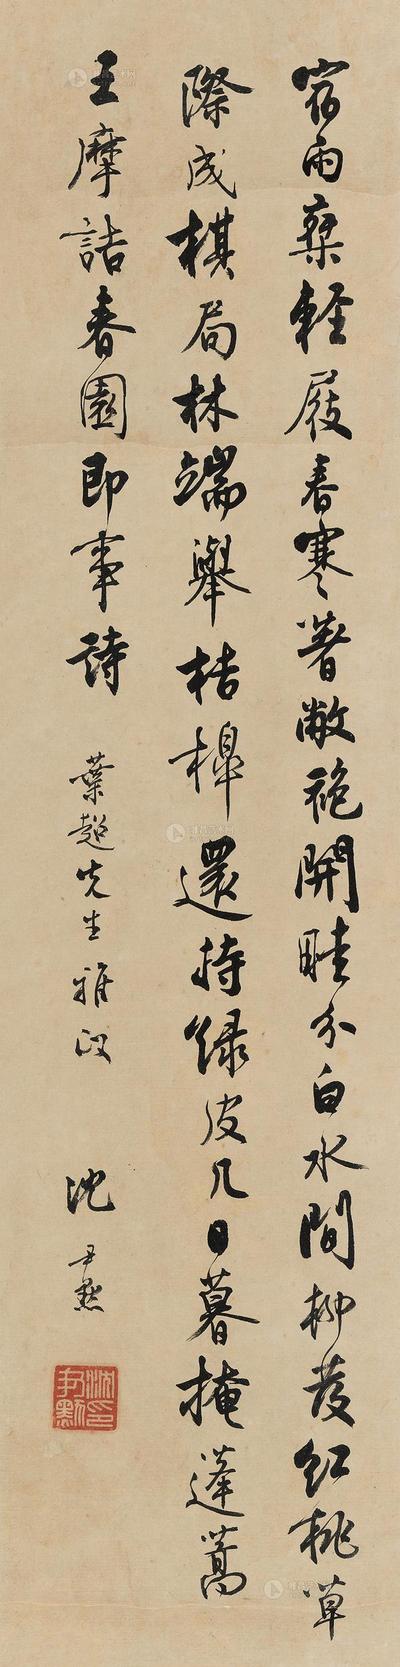 宿雨乘輕屐春寒著敝袍開畦分白水間柳發紅桃草
際成棋局林端舉桔槔還持綠皮几日暮掩蓬蒿
王摩詰春園即事詩
葉超先生雅政
沈尹默
沈尹默印